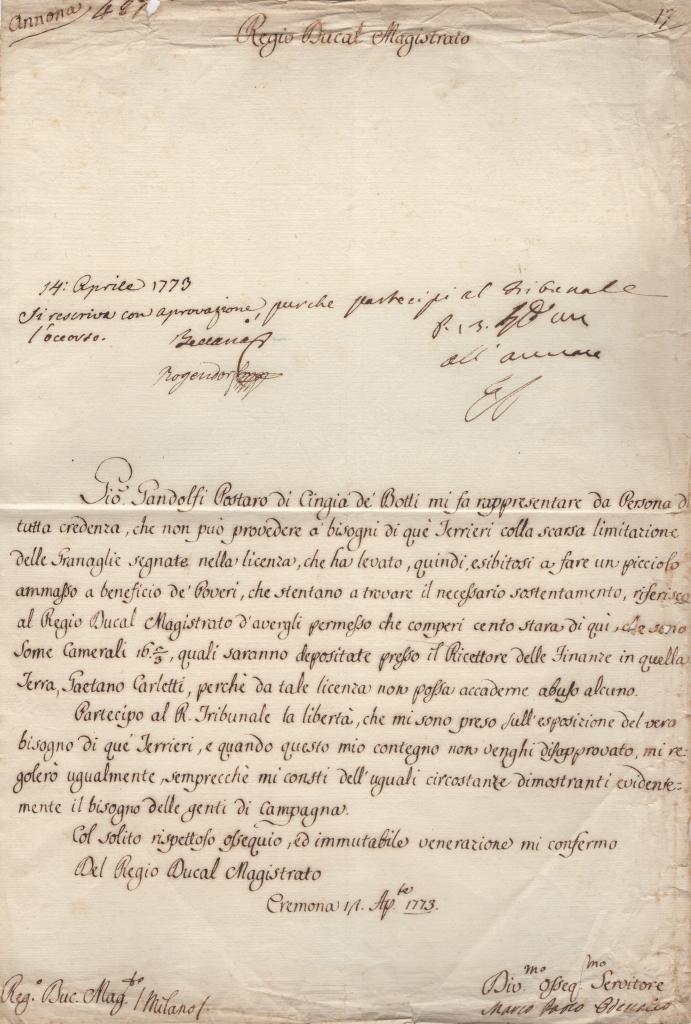 Annona 427
17
Regio Ducal Magistrato
14: Aprile 1773
Si rescriva con aprovazione, purche partecipi al Tribunale
l'occorso.
Beccaria
all' annona
Rogendorf
Gio. Gandolfi Postaro di Cingia de' Botti mi fa rappresentare da Persona di
tutta credenza, che non può provedere a' bisogni di que' Terrieri colla scarsa limitazione
delle Granaglie segnate nella licenza, che ha levato, quindi esibitosi a fare un picciolo
ammasso a beneficio de' Poveri, che stentano a trovare il necessario sostentamento, riferisco
al Regio Ducal Magistrato d'avergli permesso che comperi cento stara di quì, che sono
some Camerali 16 2/3, quali saranno depositate presso il Ricettore delle Finanze in quella
Terra, Gaetano Carletti, perchè da tale licenza non possa accaderne abuso alcuno.
Partecipo al R. Tribunale la libertà, che mi sono preso sull'esposizione del vero
bisogno di que' Terrieri, e quando questo mio contegno non venghi disapprovato, mi re-
golerò ugualmente, semprecchè mi consti dell'uguali circostanze dimostranti evidente-
mente il bisogno delle genti di Campagna.
Col solito rispettoso ossequio, ed immutabile venerazione mi confermo
Del Regio Ducal Magistrato
Cremona Ap.le 1773.
Reg.o Duc. Mag.to / Milano /.
Div.mo Osseq.mo Servitore
Marco Paolo